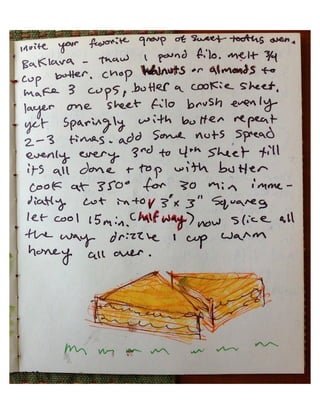 invite your favorite group of sweet tooths over.
Baklava - thaw 1 pound filo. melt 3/4
cup butter. chop walnuts or almonds to
make 3 cups, butter a cookie sheet.
layer one sheet filo brush evenly
yet sparingly with butter repeat
2-3 times. add some nuts spread
evenly every 3rd to 4th sheet till
its all done + top with butter
cook at 350° for 30 min imme-
diatly cut into 3" x 3" squares
let cool 15 min. (half way) now slice all
the way drizzle 1 cup warm
honey all over.